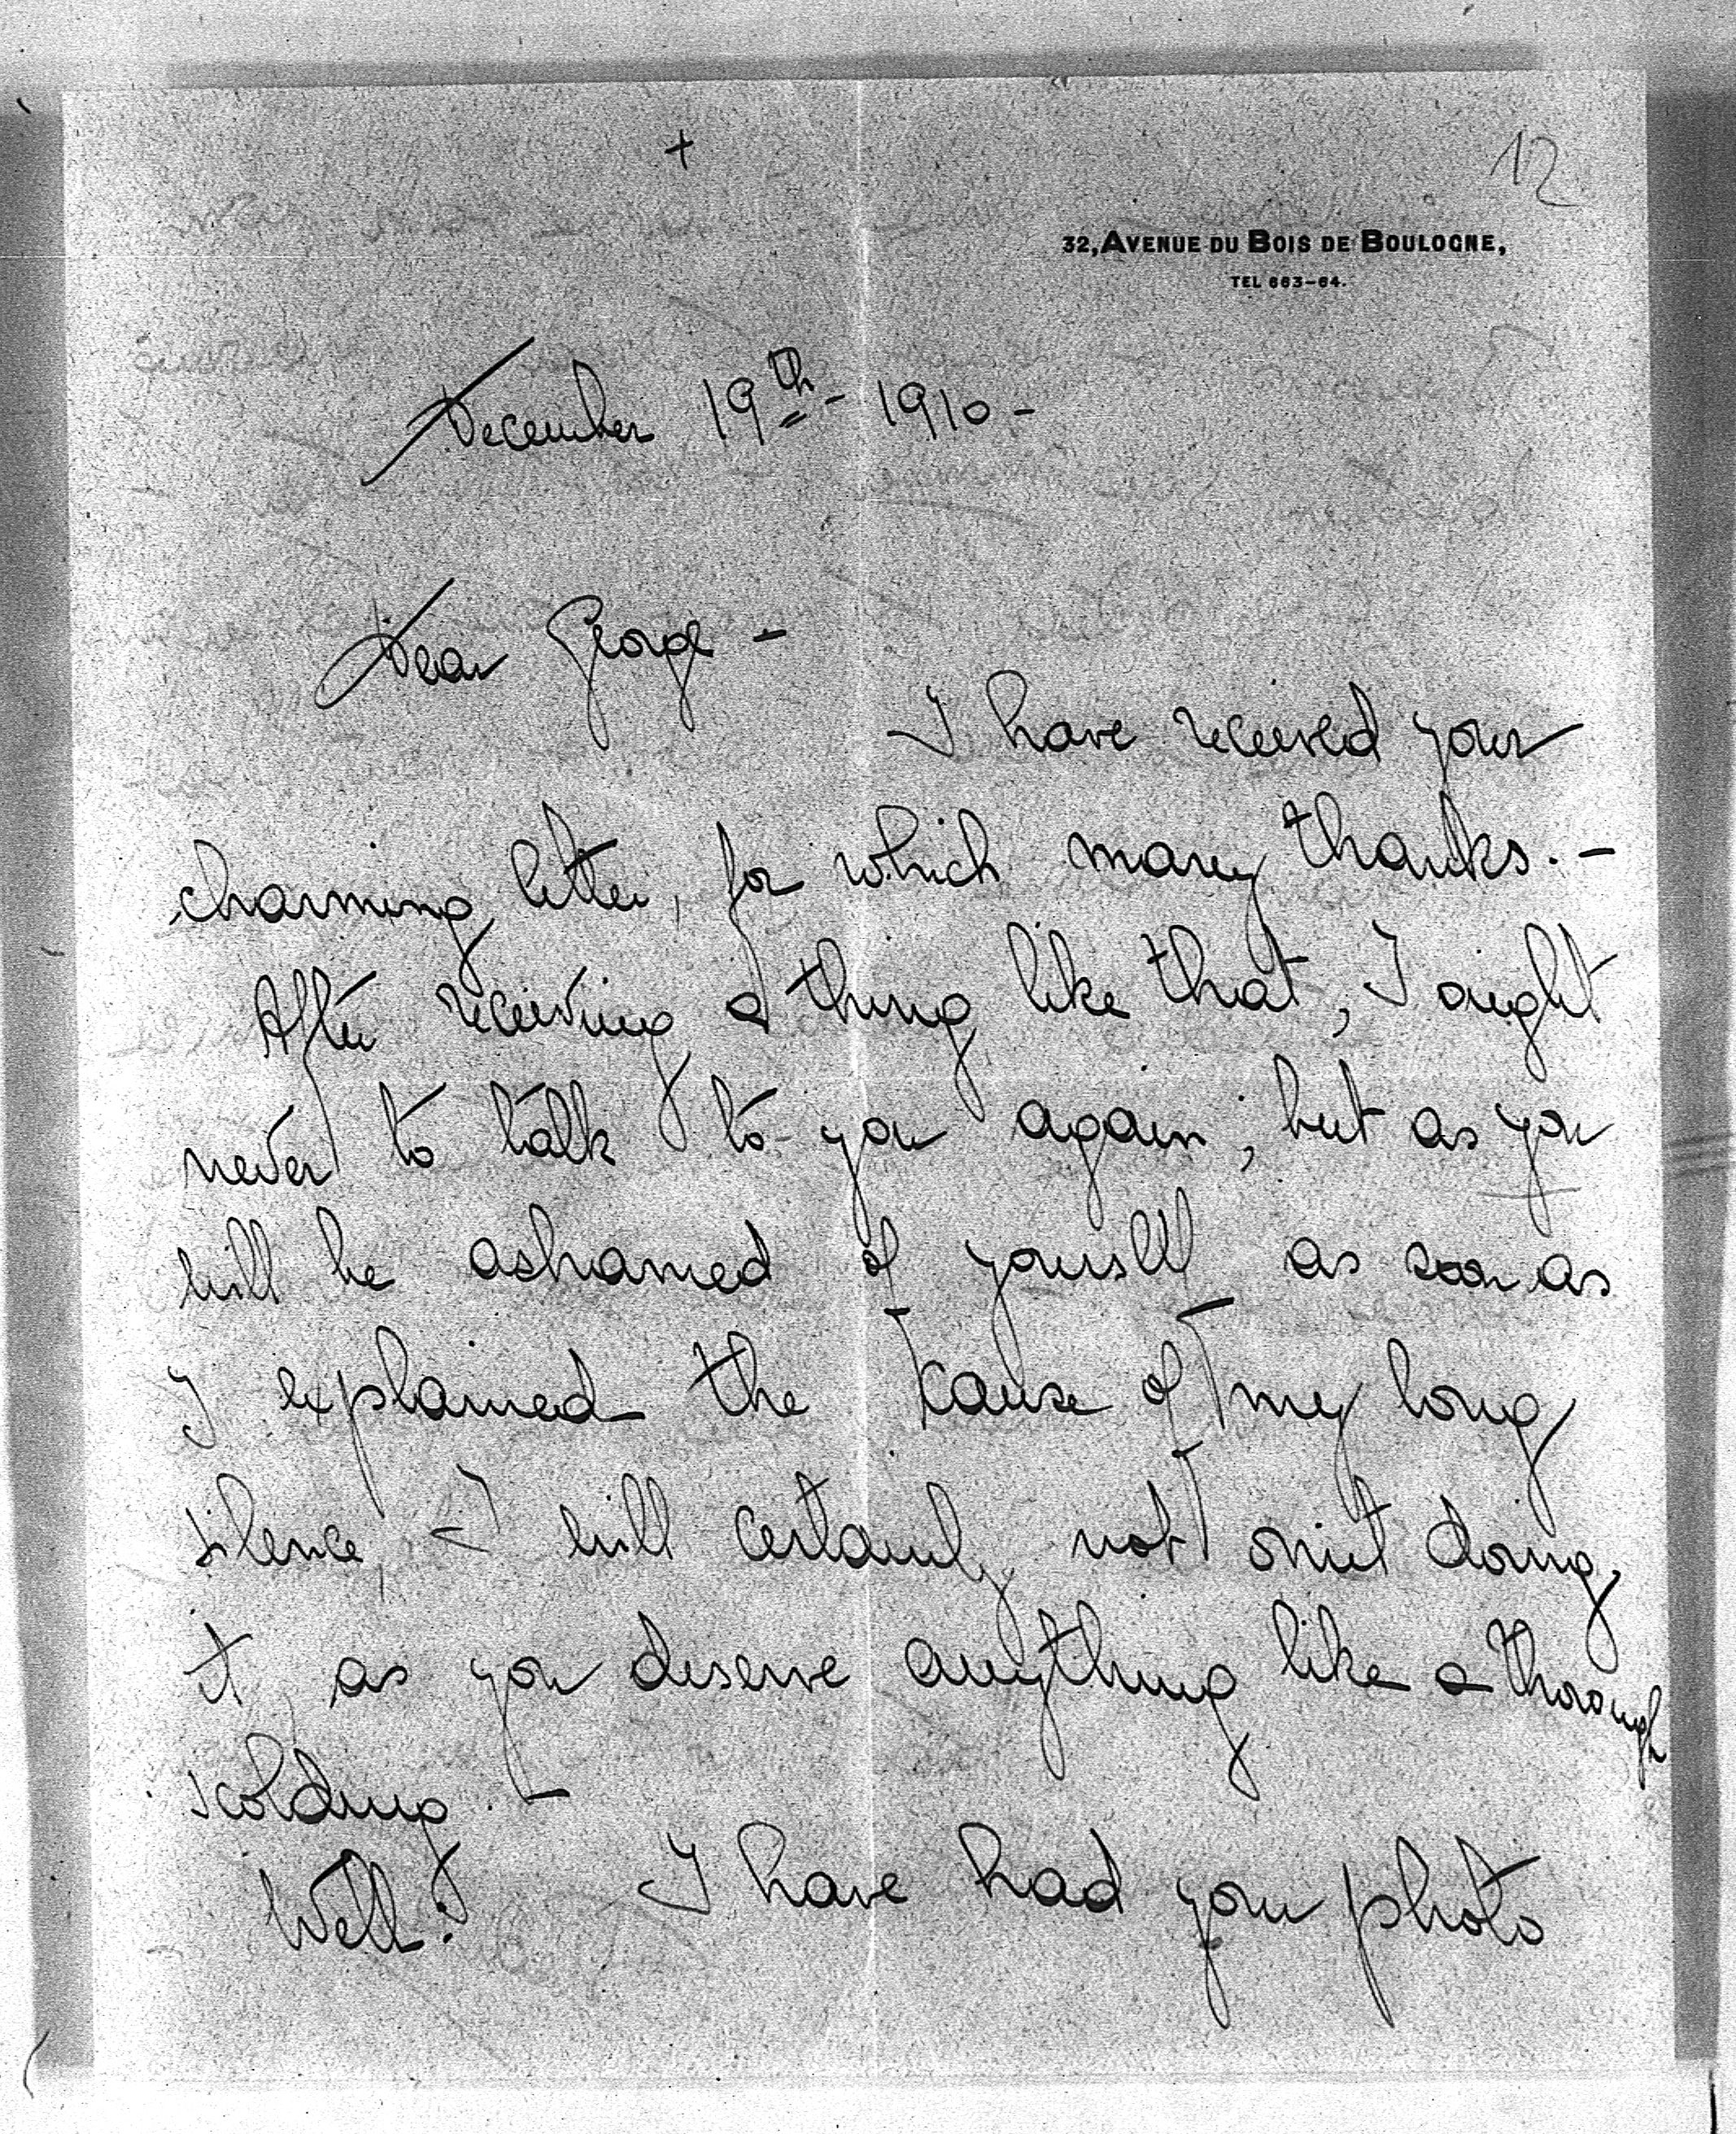 +
12
32, AVENUE DU BOIS DE BOULOGNE,
TEL 663-64.
December 19th - 1910 -
Dear George -
I have received your
charming letter, for which many thanks. -
After receiving a thing like that, I ought
never to talk to you again; but as you
will be ashamed of yourself as soon as
I explained the cause of my long
silence, I will certainly not omit doing
it as you deserve anything like a thorough
scolding. -
Well! I have had your photo